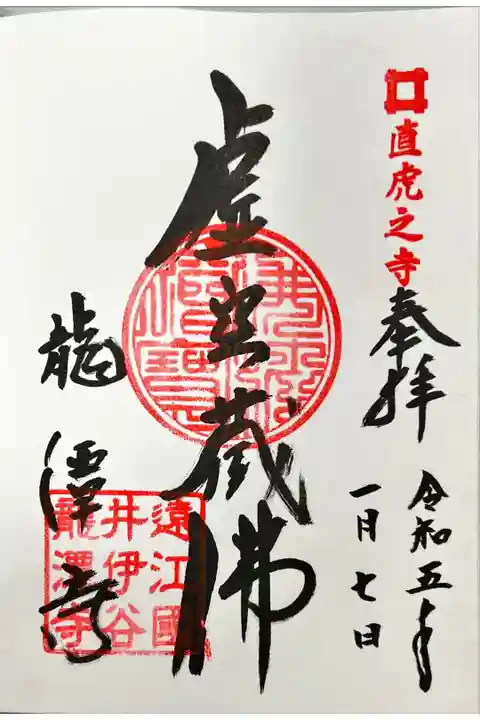 直虎之寺
奉拝
令和五年
一月七日
虚空蔵佛
佛法僧寶
龍潭寺
遠江國
井伊谷
龍潭寺